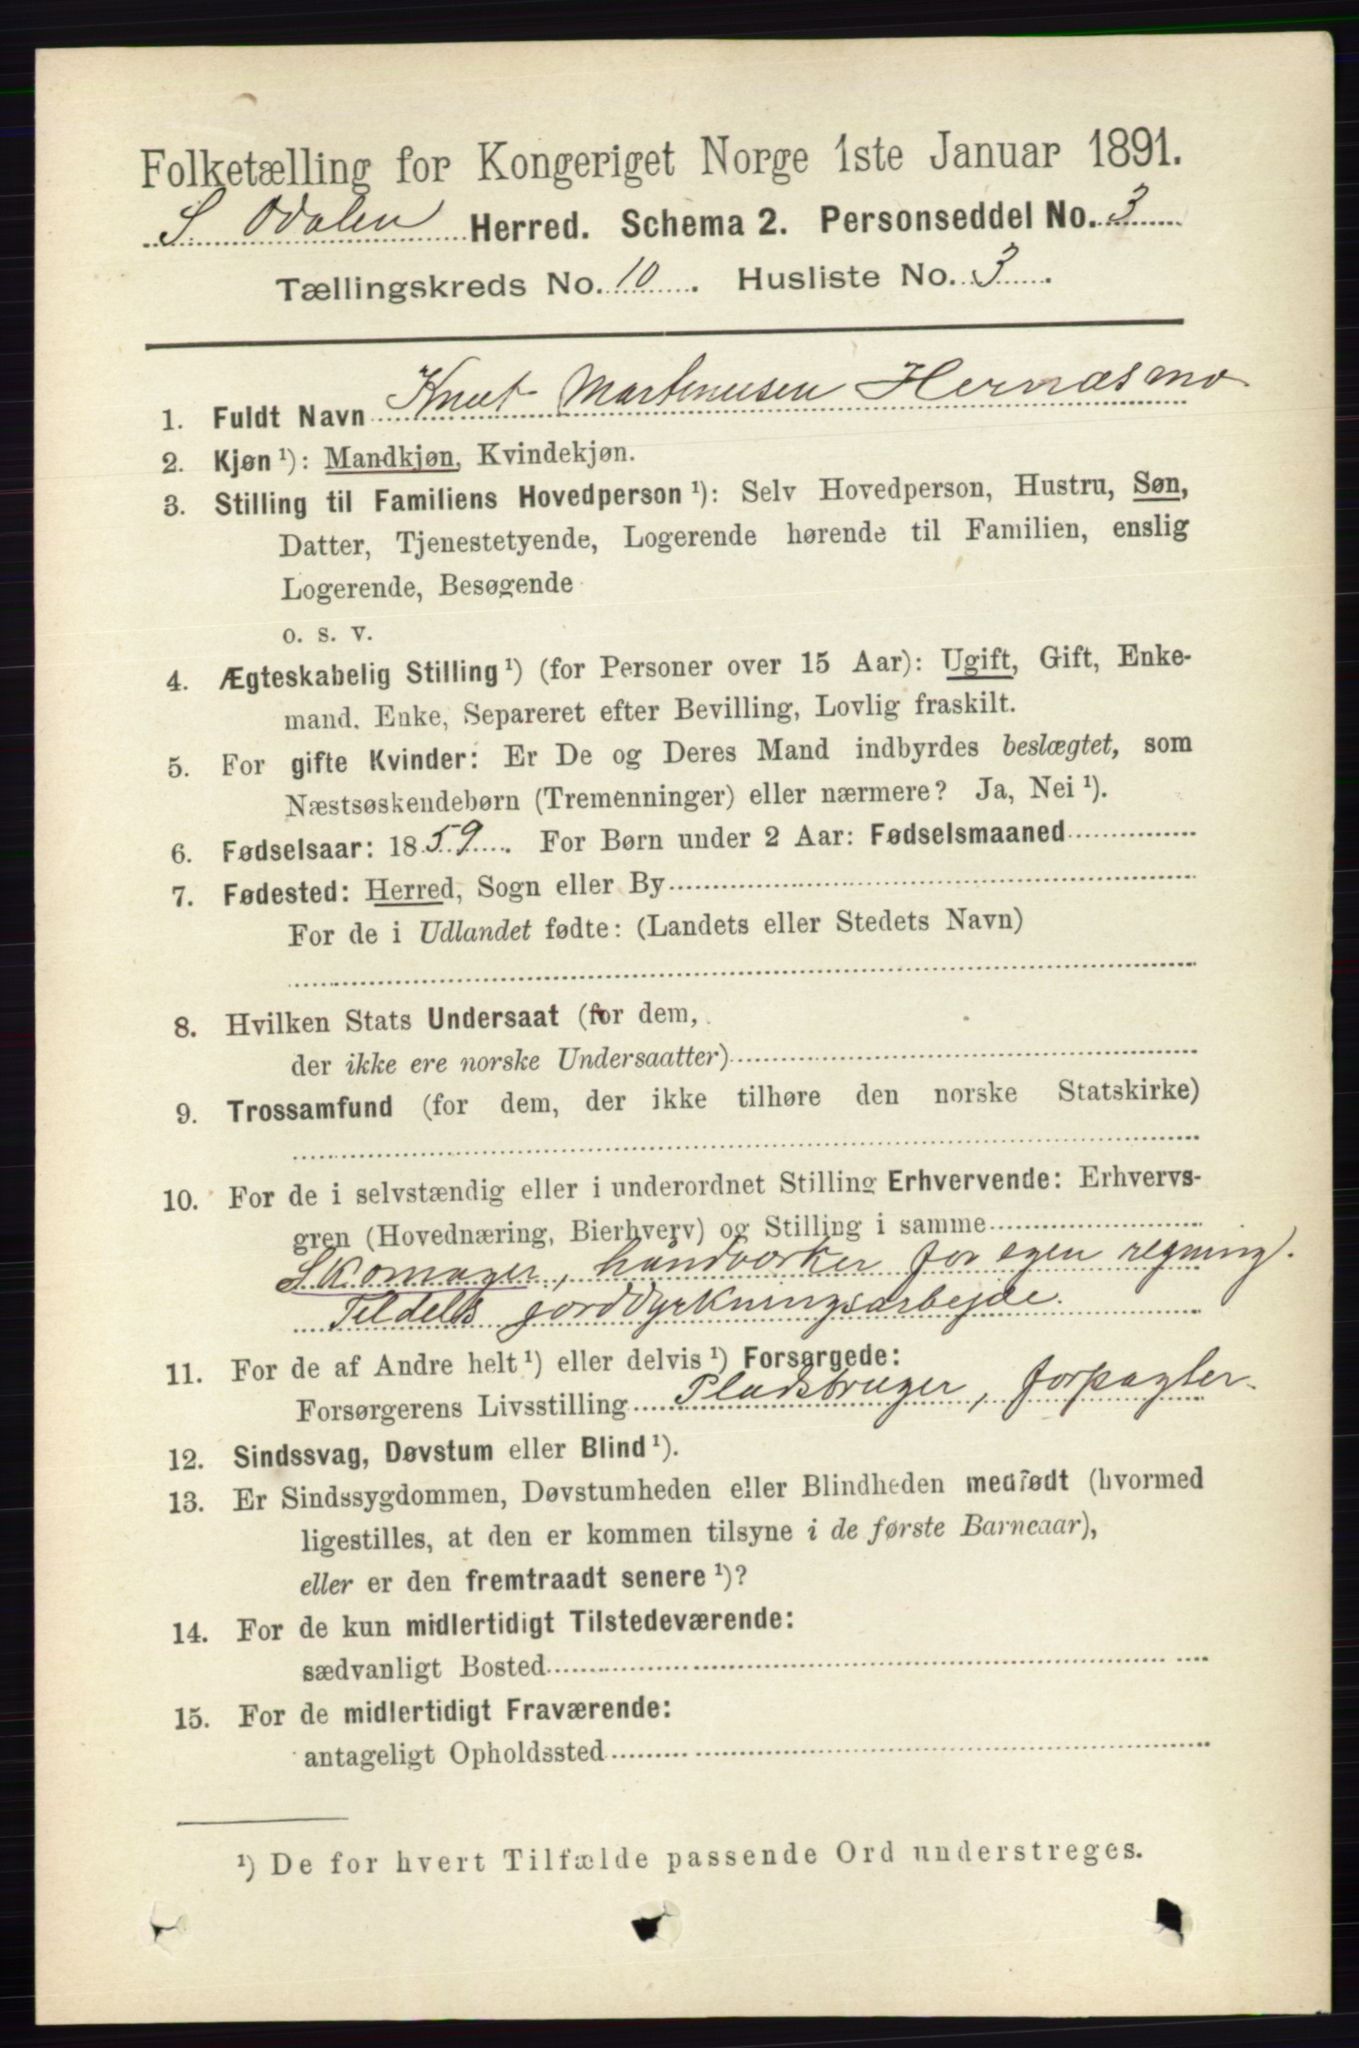 Folketælling for Kongeriget Norge 1ste Januar 1891.
S. Odalen Herred. Schema 2. Personseddel No. 3
Tællingskreds No. 10. Husliste No. 3.
1. Fuldt Navn Knut Martinusen Hernæsmo
2. Kjøn ¹): Mandkjøn, Kvindekjøn.
3. Stilling til Familiens Hovedperson ¹): Selv Hovedperson, Hustru, Søn,
Datter, Tjenestetyende, Logerende hørende til Familien, enslig
Logerende, Besøgende
o. s. v.
4. Ægteskabelig Stilling ¹) (for Personer over 15 Aar): Ugift, Gift, Enke-
mand. Enke, Separeret efter Bevilling, Lovlig fraskilt.
5. For gifte Kvinder: Er De og Deres Mand indbyrdes beslægtet, som
Næstsøskendebørn (Tremenninger) eller nærmere? Ja, Nei ¹).
6. Fødselsaar: 1859. For Børn under 2 Aar: Fødselsmaaned
7. Fødested: Herred, Sogn eller By
For de i Udlandet fødte: (Landets eller Stedets Navn)
8. Hvilken Stats Undersaat (for dem,
der ikke ere norske Undersaatter)
9. Trossamfund (for dem, der ikke tilhøre den norske Statskirke)
10. For de i selvstændig eller i underordnet Stilling Erhvervende: Erhvervs-
gren (Hovednæring, Bierhverv) og Stilling i samme
Skomager, håndværker for egen regning.
Tildels jorddyrkningsarbejde.
11. For de af Andre helt ¹) eller delvis ¹) Forsørgede:
Forsørgerens Livsstilling Pladsbruger, forpagter.
12. Sindssvag, Døvstum eller Blind ¹).
13. Er Sindssygdommen, Døvstumheden eller Blindheden medfødt (hvormed
ligestilles, at den er kommen tilsyne i de første Barneaar),
eller er den fremtraadt senere ¹)?
14. For de kun midlertidigt Tilstedeværende:
sædvanligt Bosted
15. For de midlertidigt Fraværende:
antageligt Opholdssted
¹) De for hvert Tilfælde passende Ord understreges.